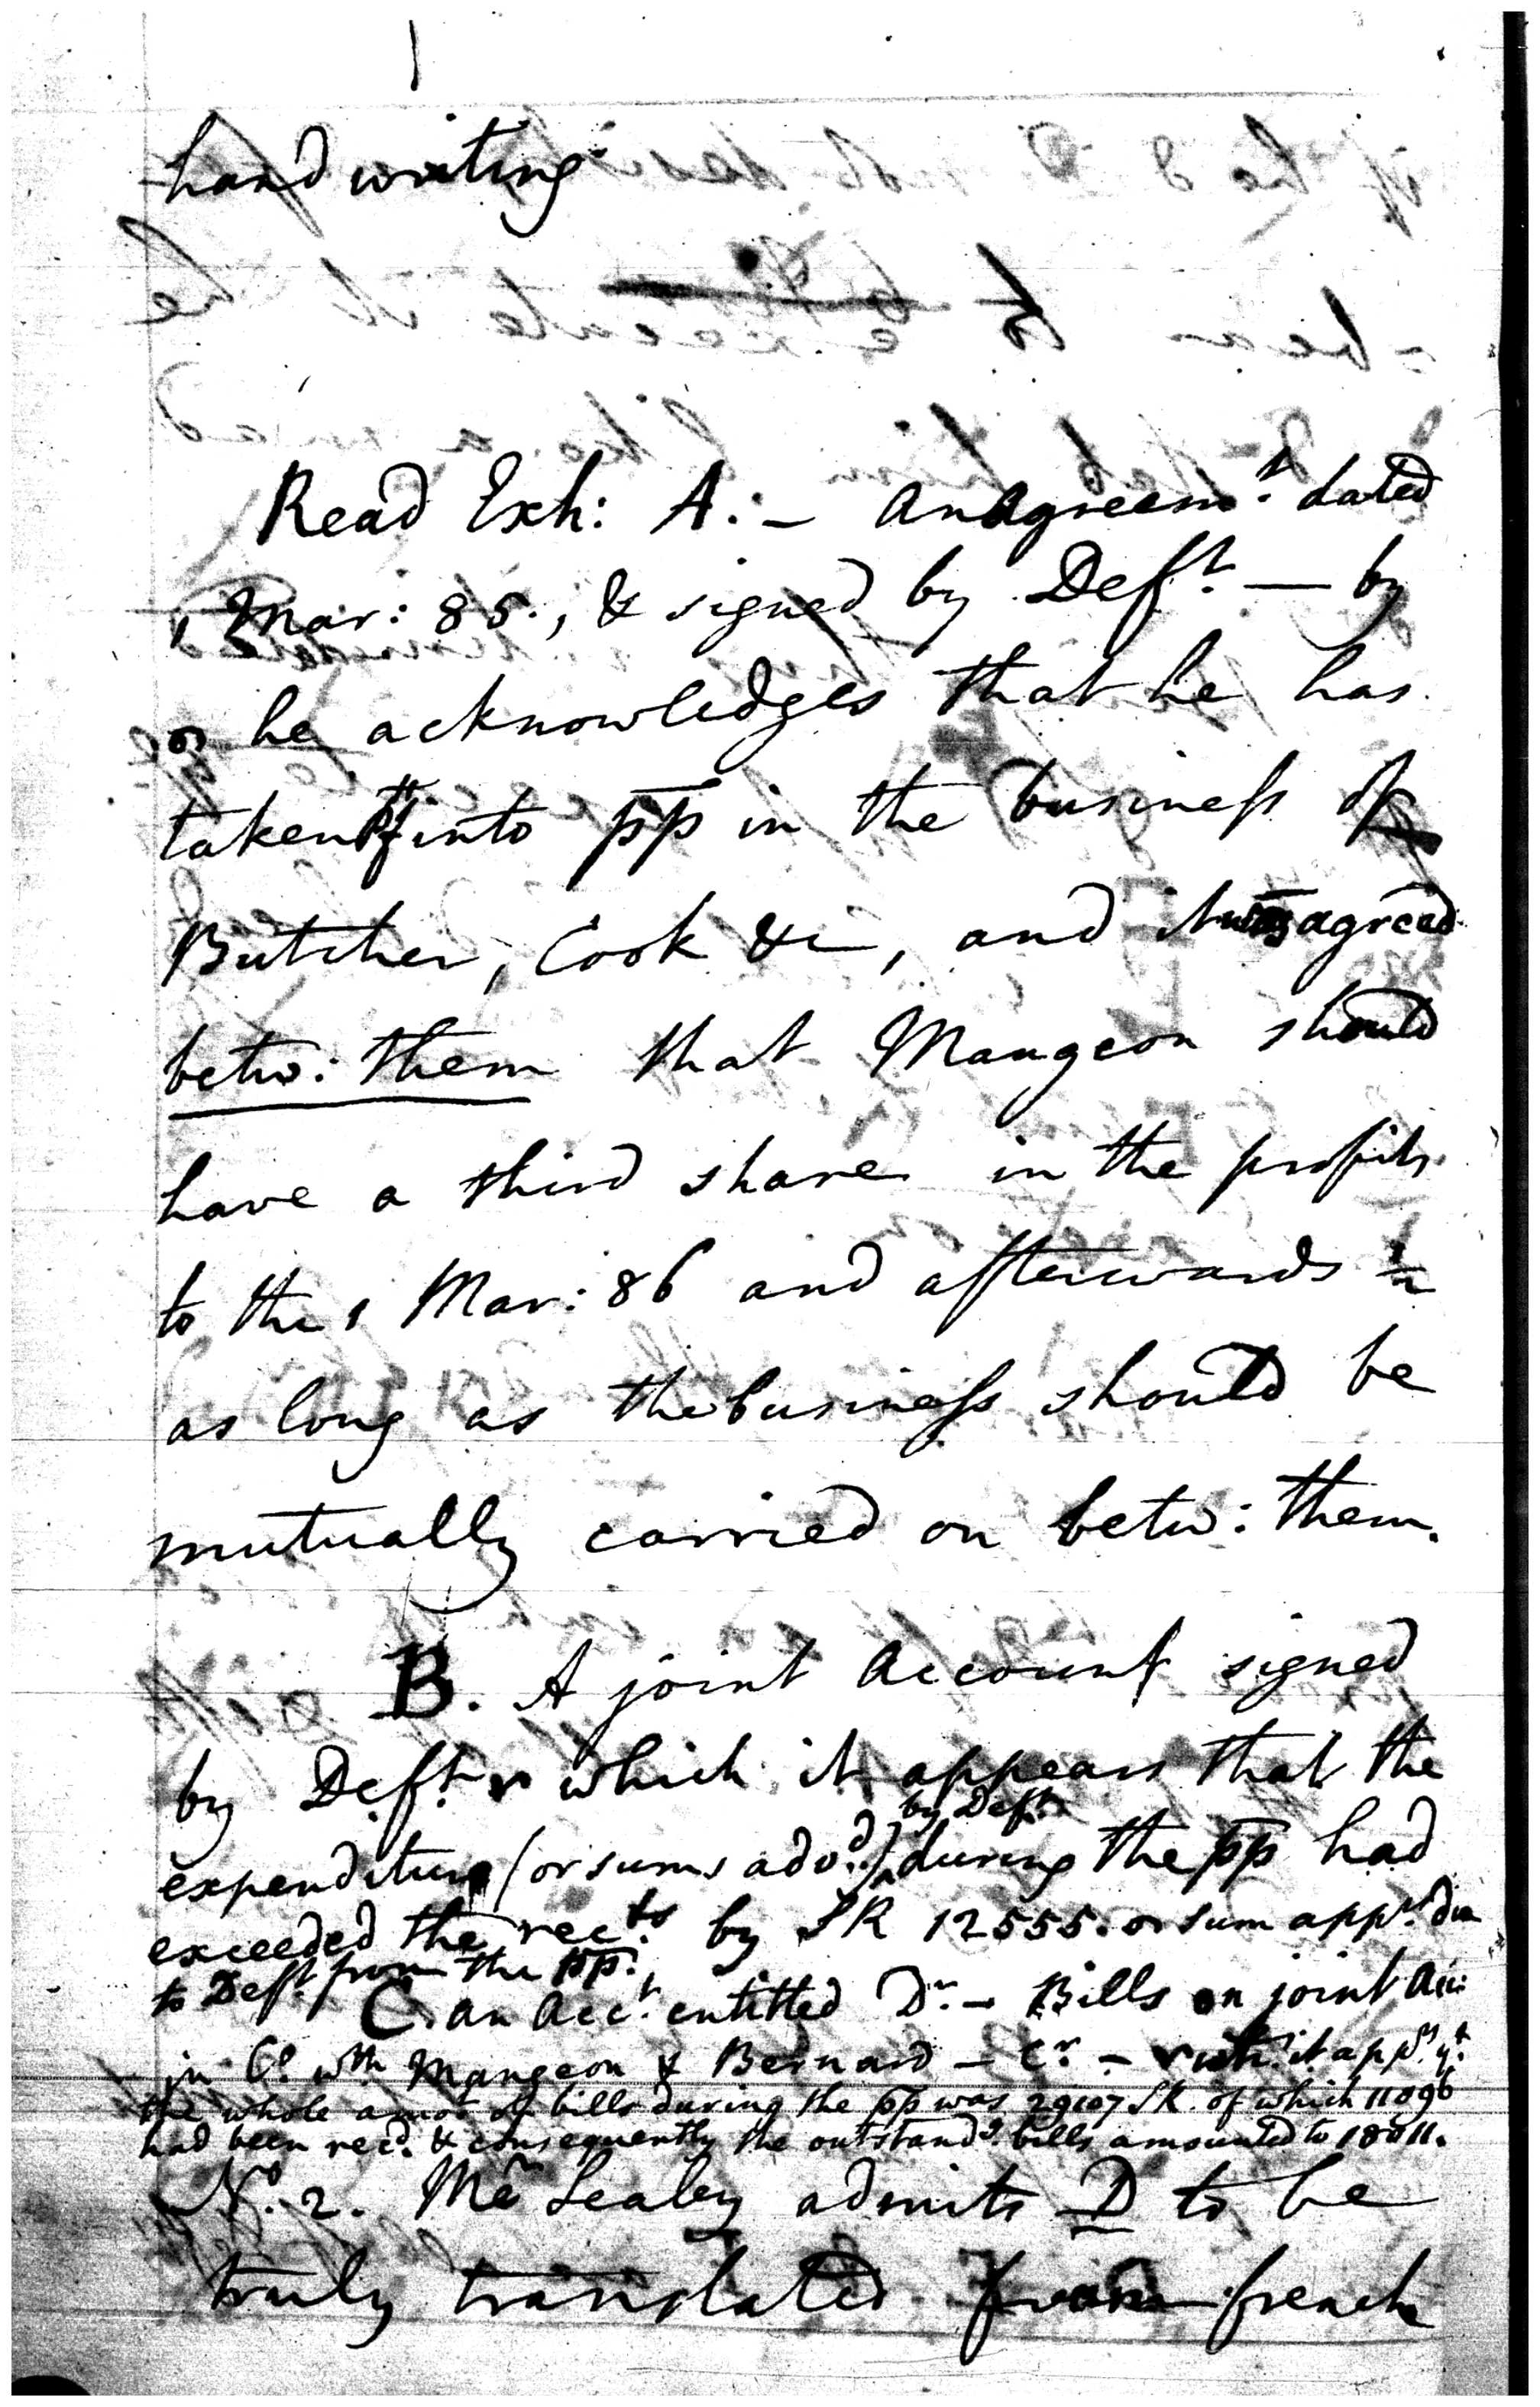 hand writing
Read Exh: A. – an Agreemt. dated
1 Mar: 85., & signed by Deft. — by
he acknowledges that he has
taken Pltf into pp in the business of
Butcher, Cook &c, and it was agreed
betw: them that Mangeon should
have a third share in the profits
to the 1 Mar: 86 and afterwards ½
as long as the business should be
mutually carried on betw: them.
B. A joint Account signed
by Deft. which it appears that the
by Deft
expenditure (or sums advd.) during the pp had
exceeded the rects. by SR 12555. or sum appg. due
to Deft. from the pp.
C. an Acct. entitled Dr. – Bills on joint Acc:
in Co. wth Mangeon & Bernard – Cr. – it apprs yt.
the whole amot of bills during the pp was 29107 SR. of which 11096
had been recd. & consequently the outstandg. bills amounted to 18011.
No. 2. Mr Sealey admits D to be
truly translated from french